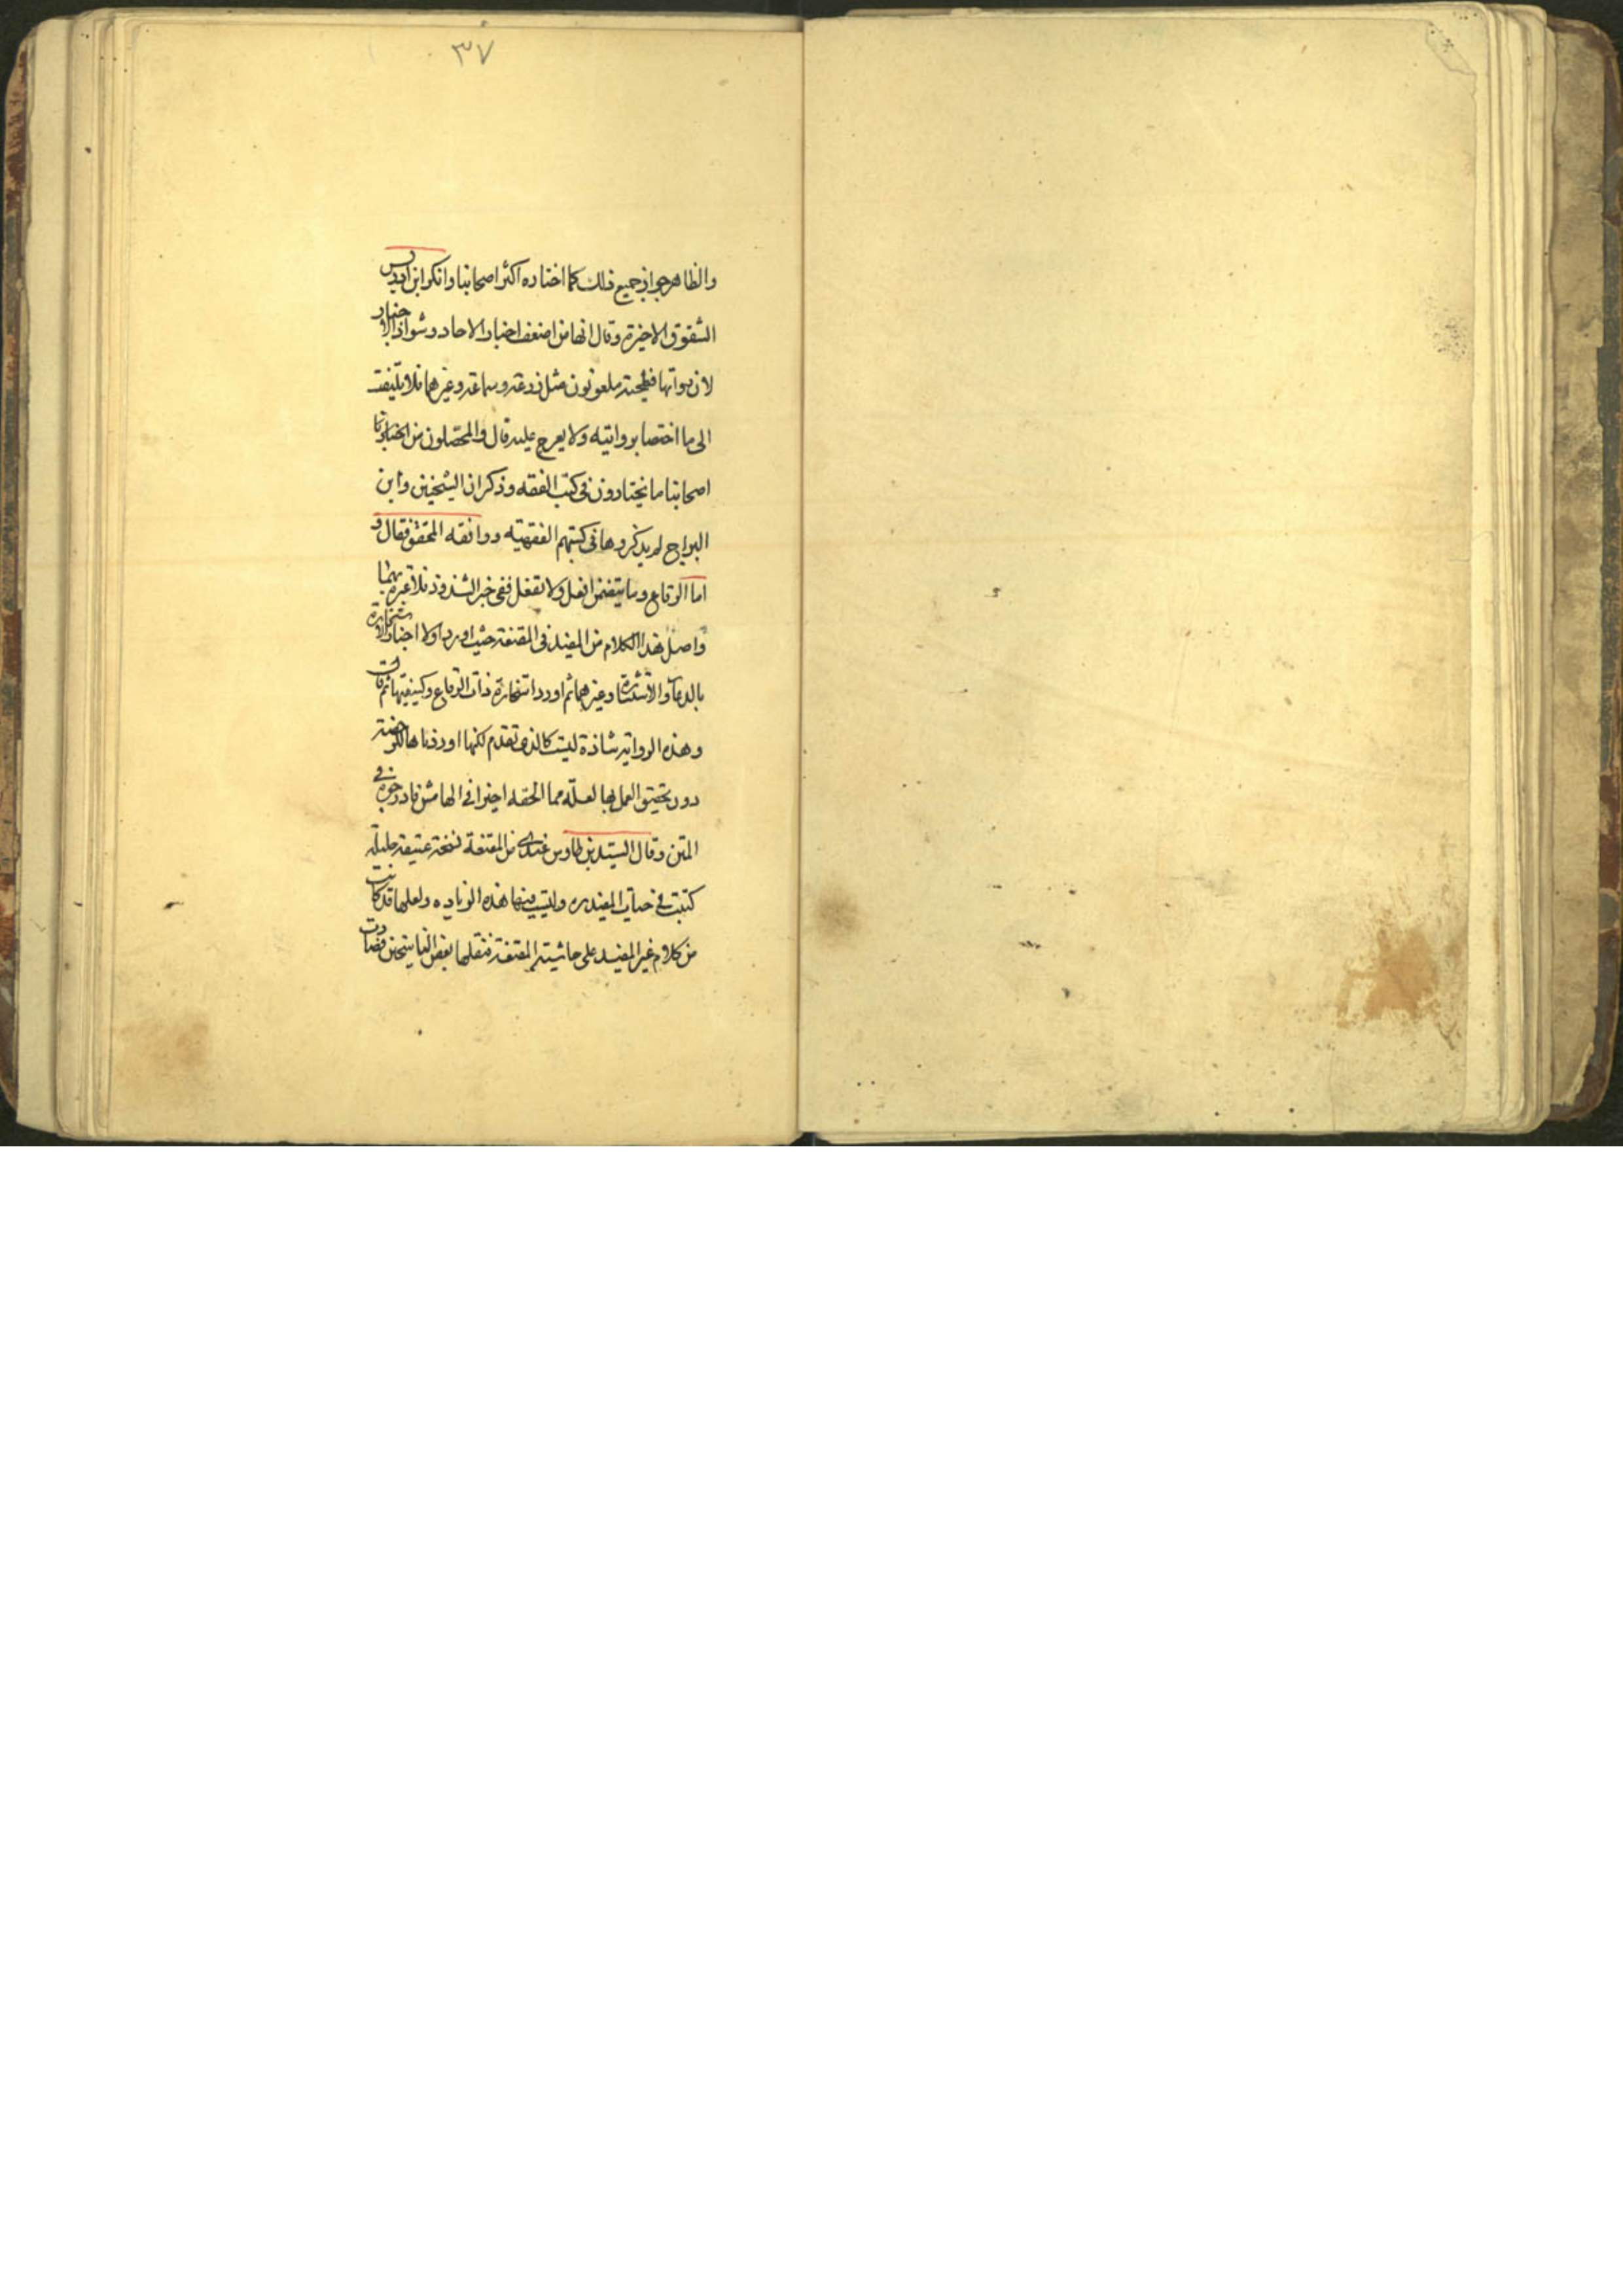 ٣٧
والظاهر جواز جميع ذلك كما اختاره اكثر اصحابنا وانكر ابن ادريس
الشقوق الاخيرة وقال انها من اضعف اخبار الاحاد وشواذ الاخبار
لان رواتها فطحية ملعونون مثل زرعة وسماعة وغيرهما فلا يلتفت
الى ما اختصا بروايته ولا يعرج عليه قال والمحصلون من
اصحابنا ما يختارون فى كتب الفقه وذكر ان الشيخين وابن
البراج لم يذكروها فى كتبهم الفقهية ووافقه المحقق فقال و
اما الرقاع وما يتضمن افعل ولا تفعل ففى خبر الشذوذ فلا عبرة بهما
واصل هذا الكلام من المفيد فى المقنعة حيث اورد اولا اخبار الاستخارة
بالدعاء والاستشارة وغيرهما ثم اورد استخارة ذات الرقاع وكيفيتها ثم قال
وهذه الرواية شاذة ليست كالذى تقدم لكنها اوردناها للرخصة
دون تحقيق العمل بها لعله مما الحقه اخيرا فى الهامش فادرجوه فى
المتن وقال السيد بن طاوس عندى من المقنعة نسخة عتيقة جليلة
كتبت فى حياة المفيد ره وليست فيها هذه الزياده ولعلها قد كانت
من كلام غير المفيد على حاشية المقنعة فنقلها بعض الناسخين فصارت